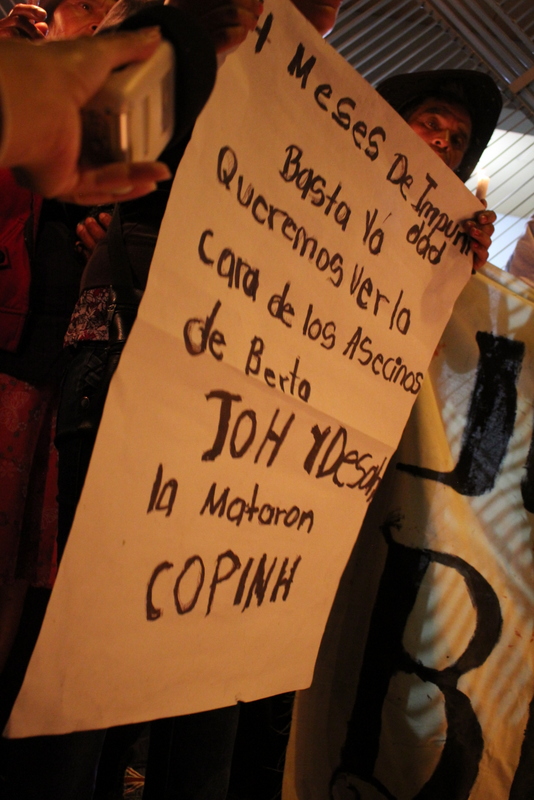 4 Meses De Impuni
dad
Basta Ya
Queremos Ver la
cara de los Asecinos
de Berta
JOH Y Desa
la Mataron
COPINH
J
B